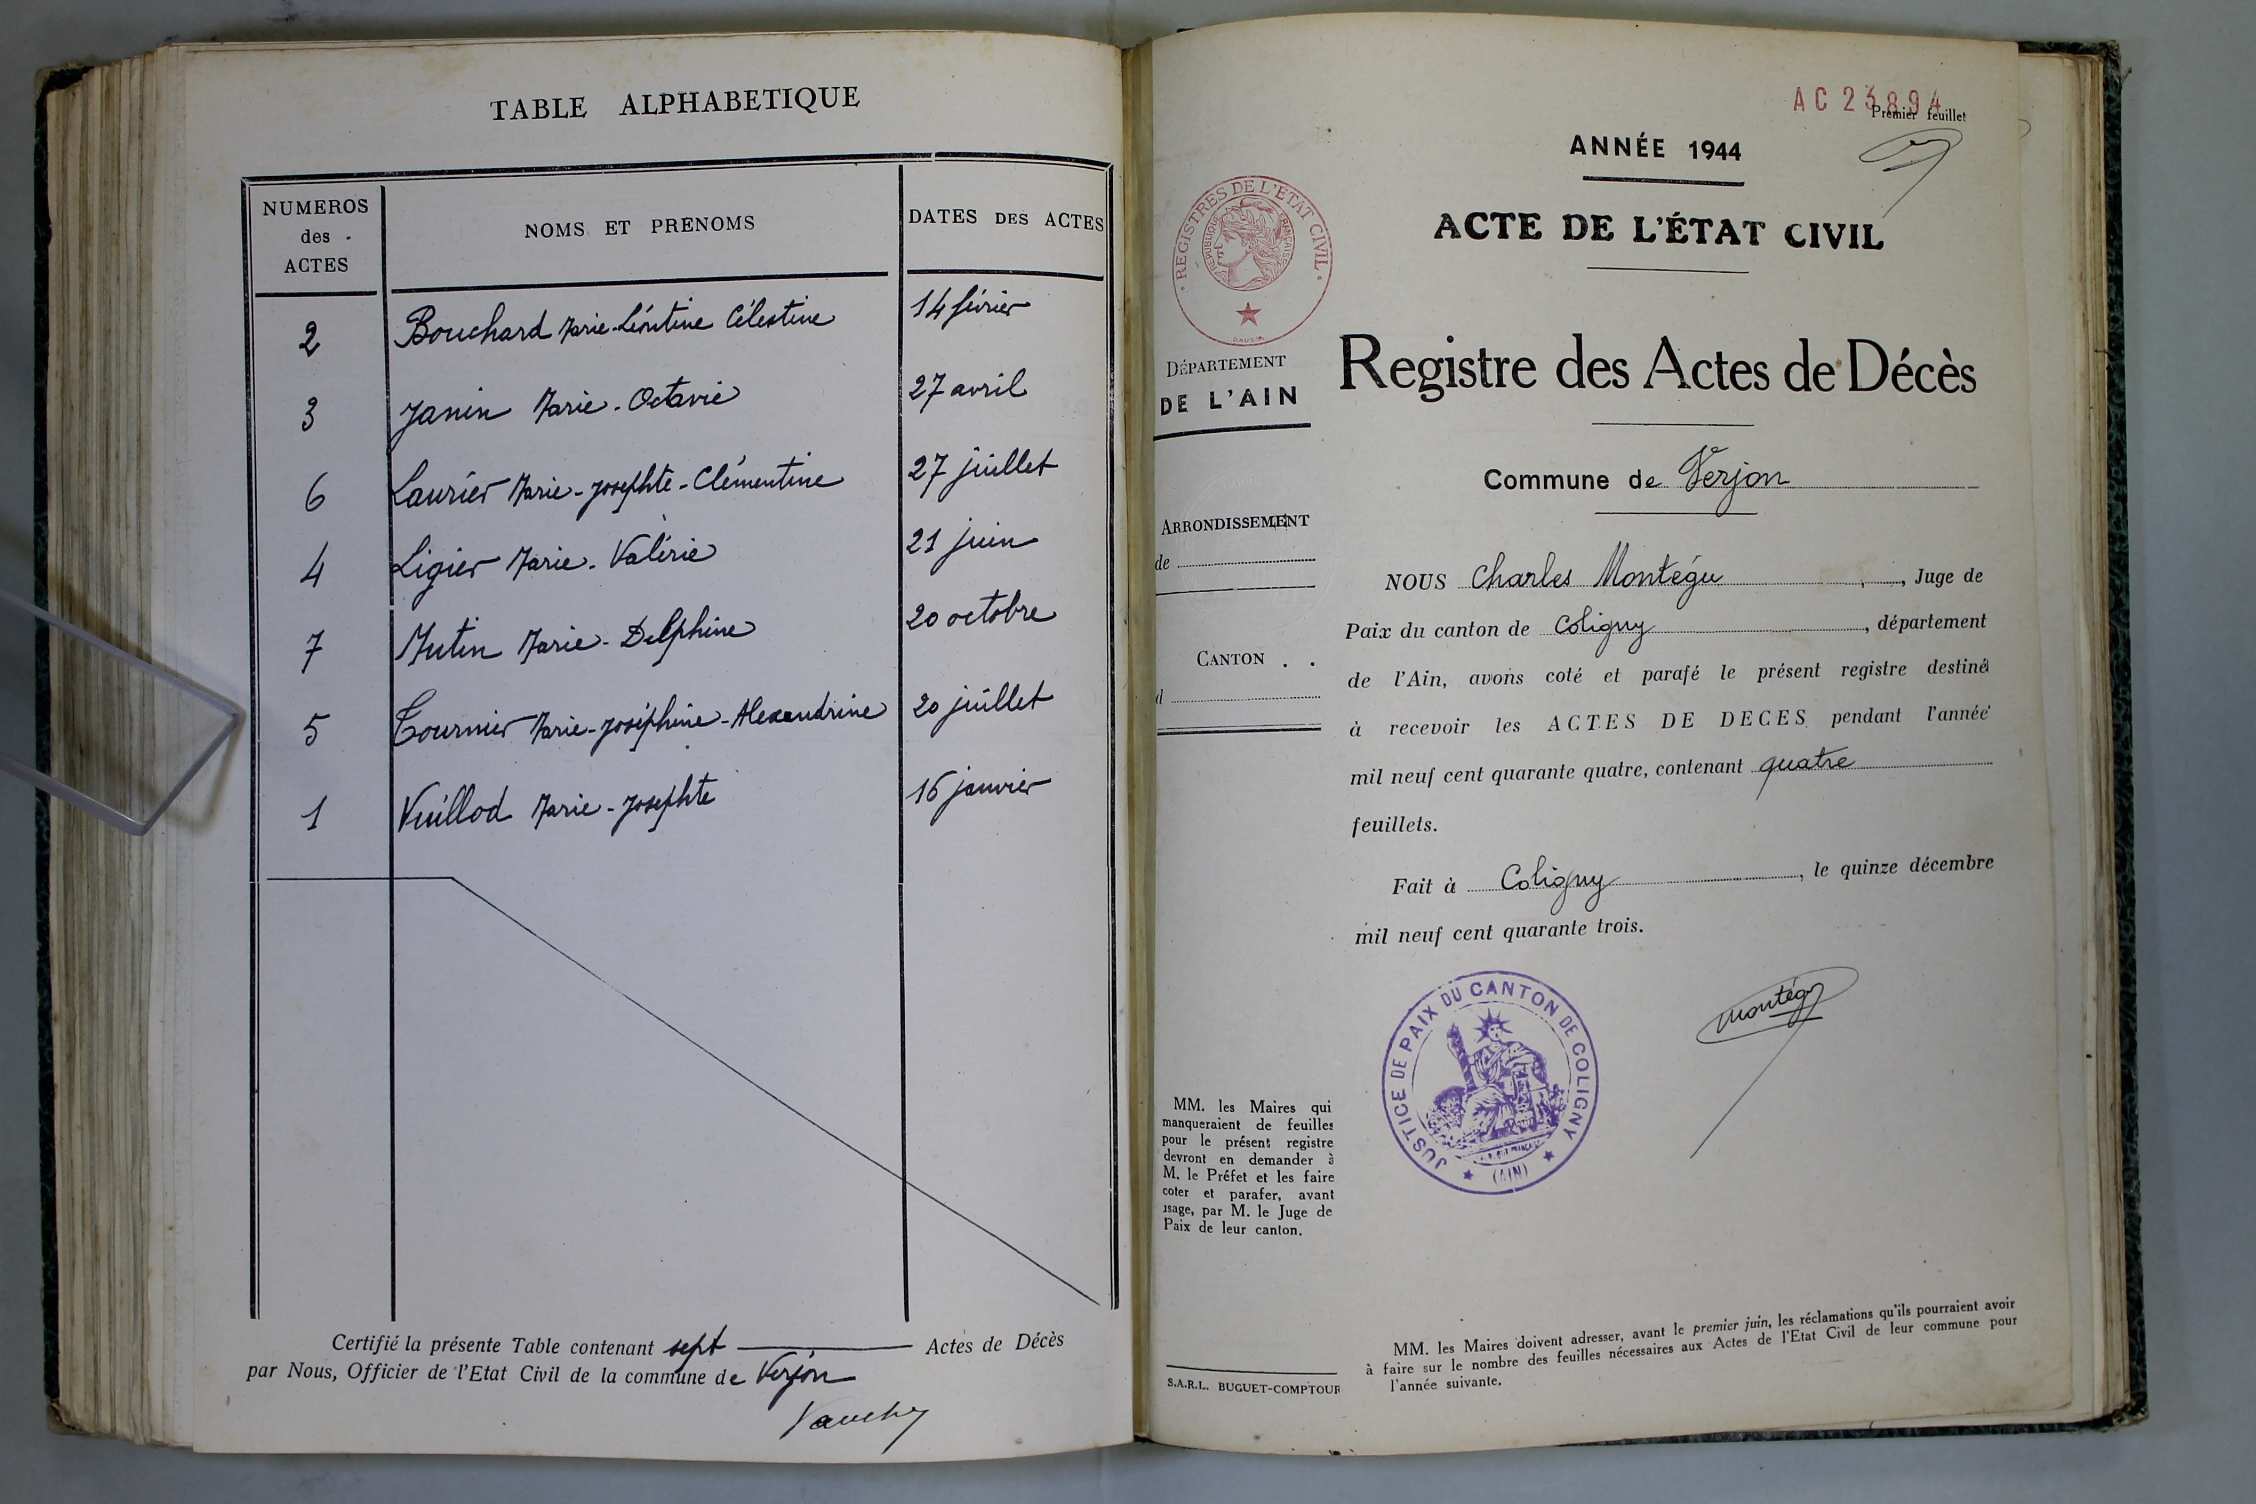 TABLE ALPHABETIQUE
NUMEROS
des
ACTES
NOMS ET PRENOMS
DATES DES ACTES
2 Bouchard Marie-Léontine Célestine 14 février
3 Janin Marie-Octavie 27 avril
6 Laurier Marie-Josephte-Clémentine 27 juillet
4 Ligier Marie-Valérie 21 juin
7 Mutin Marie-Delphine 20 octobre
5 Tournier Marie-Joséphine-Alexandrine 20 juillet
1 Vuillod Marie-Josephte 16 janvier
Certifié la présente Table contenant sept Actes de Décès
par Nous, Officier de l'Etat Civil de la commune de Verjon
Vauchey
AC 23894
Premier feuillet
ANNÉE 1944
ACTE DE L'ÉTAT CIVIL
REGISTRES DE L'ETAT CIVIL
REPUBLIQUE FRANÇAISE
DÉPARTEMENT
DE L'AIN
Registre des Actes de Décès
Commune de Verjon
ARRONDISSEMENT
de
CANTON . .
d
NOUS Charles Montégu, Juge de
Paix du canton de Coligny, département
de l'Ain, avons coté et parafé le présent registre destiné
à recevoir les ACTES DE DECES pendant l'année
mil neuf cent quarante quatre, contenant quatre
feuillets.
Fait à Coligny, le quinze décembre
mil neuf cent quarante trois.
JUSTICE DE PAIX DU CANTON DE COLIGNY
(AIN)
Montégu
MM. les Maires qui
manqueraient de feuilles
pour le présent registre
devront en demander à
M. le Préfet et les faire
coter et parafer, avant
usage, par M. le Juge de
Paix de leur canton.
S.A.R.L. BUGUET-COMPTOUR
MM. les Maires doivent adresser, avant le premier juin, les réclamations qu'ils pourraient avoir
à faire sur le nombre des feuilles nécessaires aux Actes de l'Etat Civil de leur commune pour
l'année suivante.